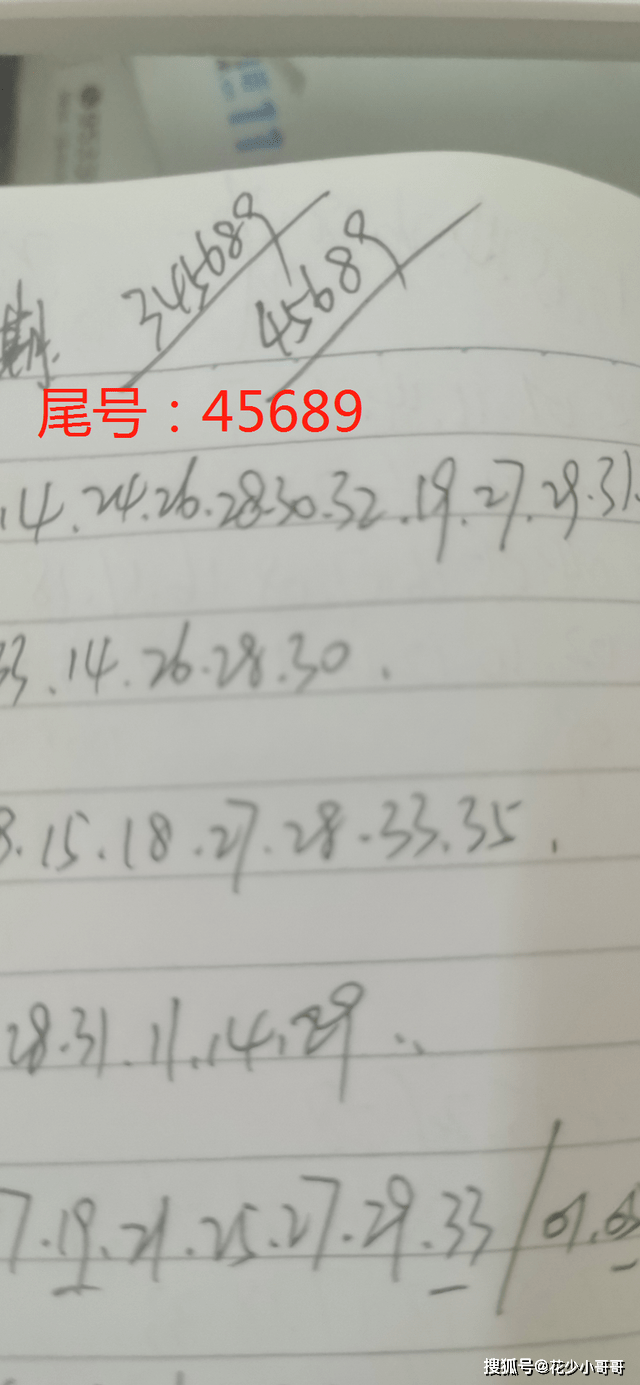 期.
345689
45689
尾号：45689
14.24.26.28.30.32.19.27.29.31.
33.14.26.28.30.
3.15.18.27.28.33.35.
28.31.11.14.29..
7.19.21.25.27.29.33/01.05
搜狐号@花少小哥哥